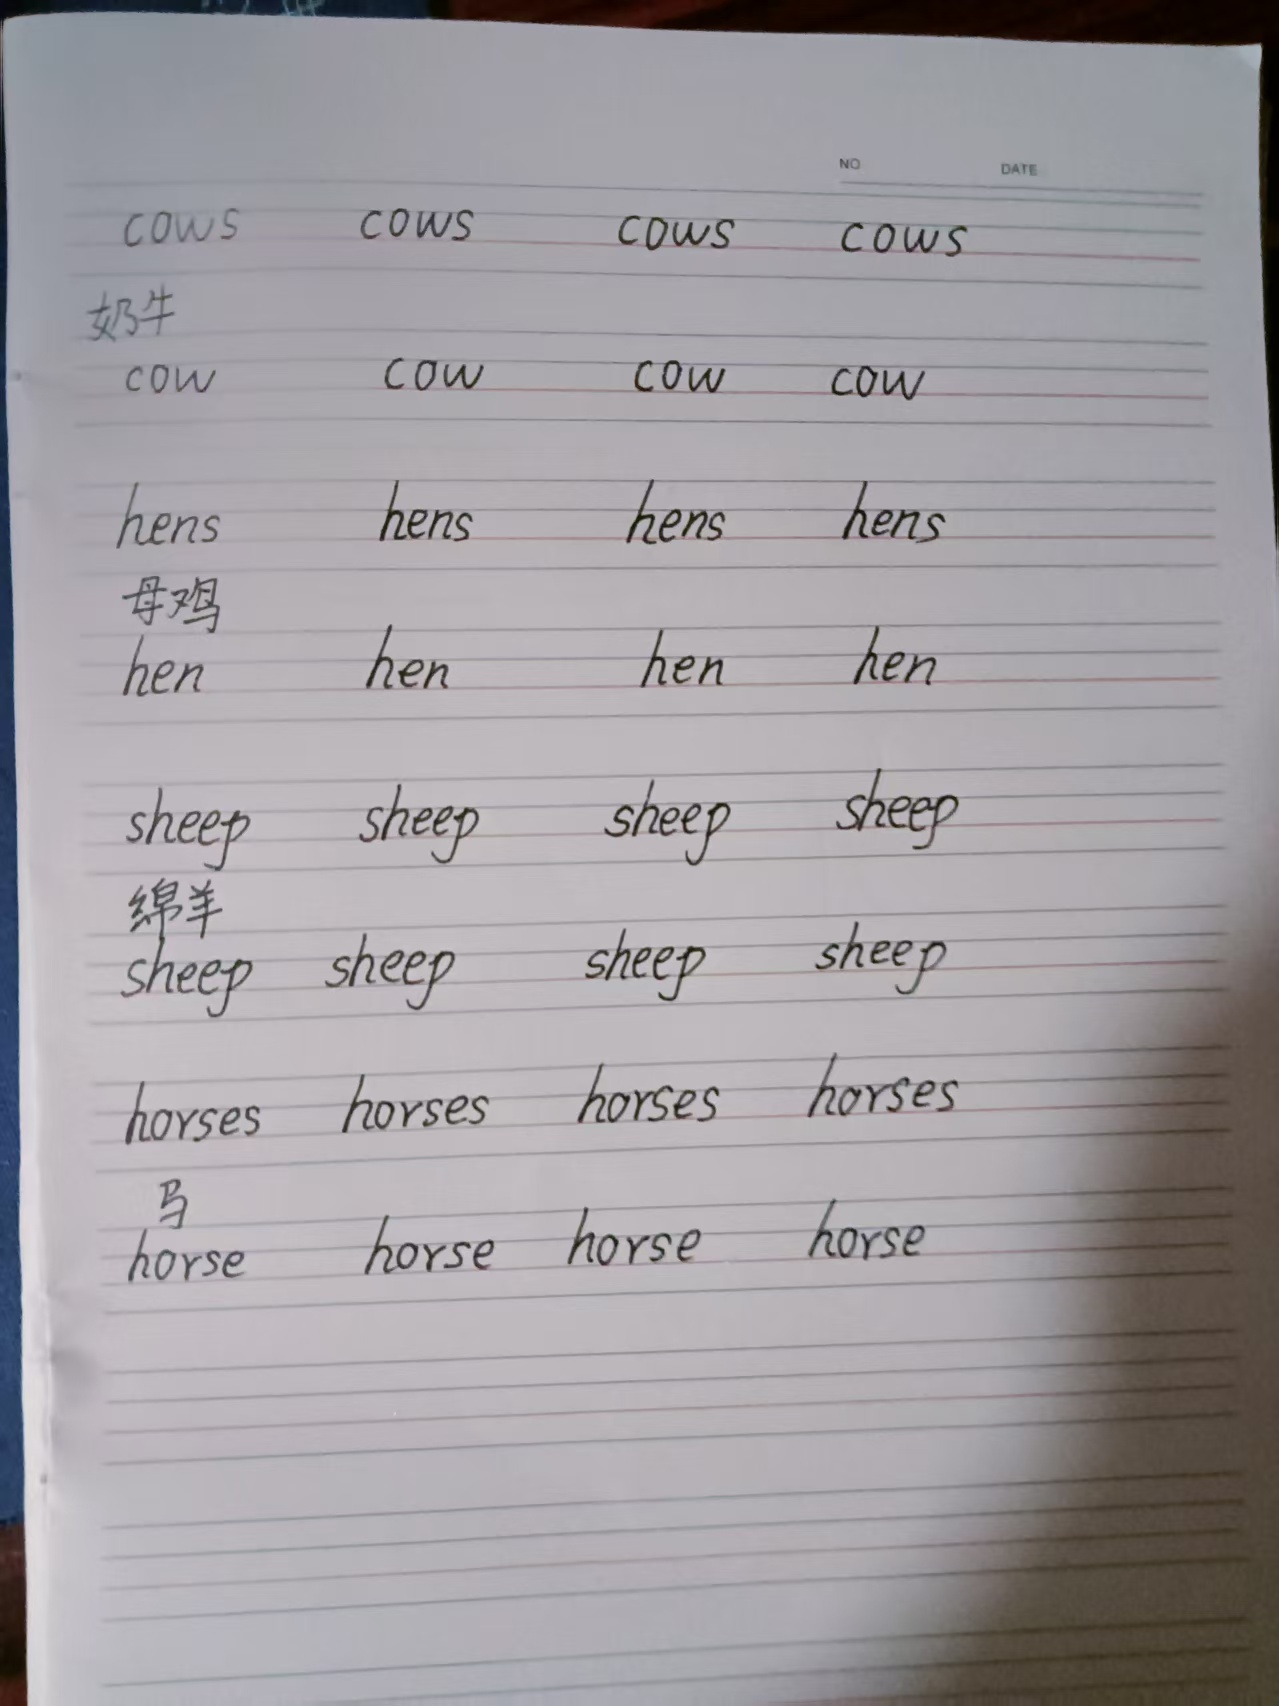 NO DATE
cows cows cows cows
奶牛
cow cow cow cow
hens hens hens hens
母鸡
hen hen hen hen
sheep sheep sheep sheep
绵羊
sheep sheep sheep sheep
horses horses horses horses
马
horse horse horse horse